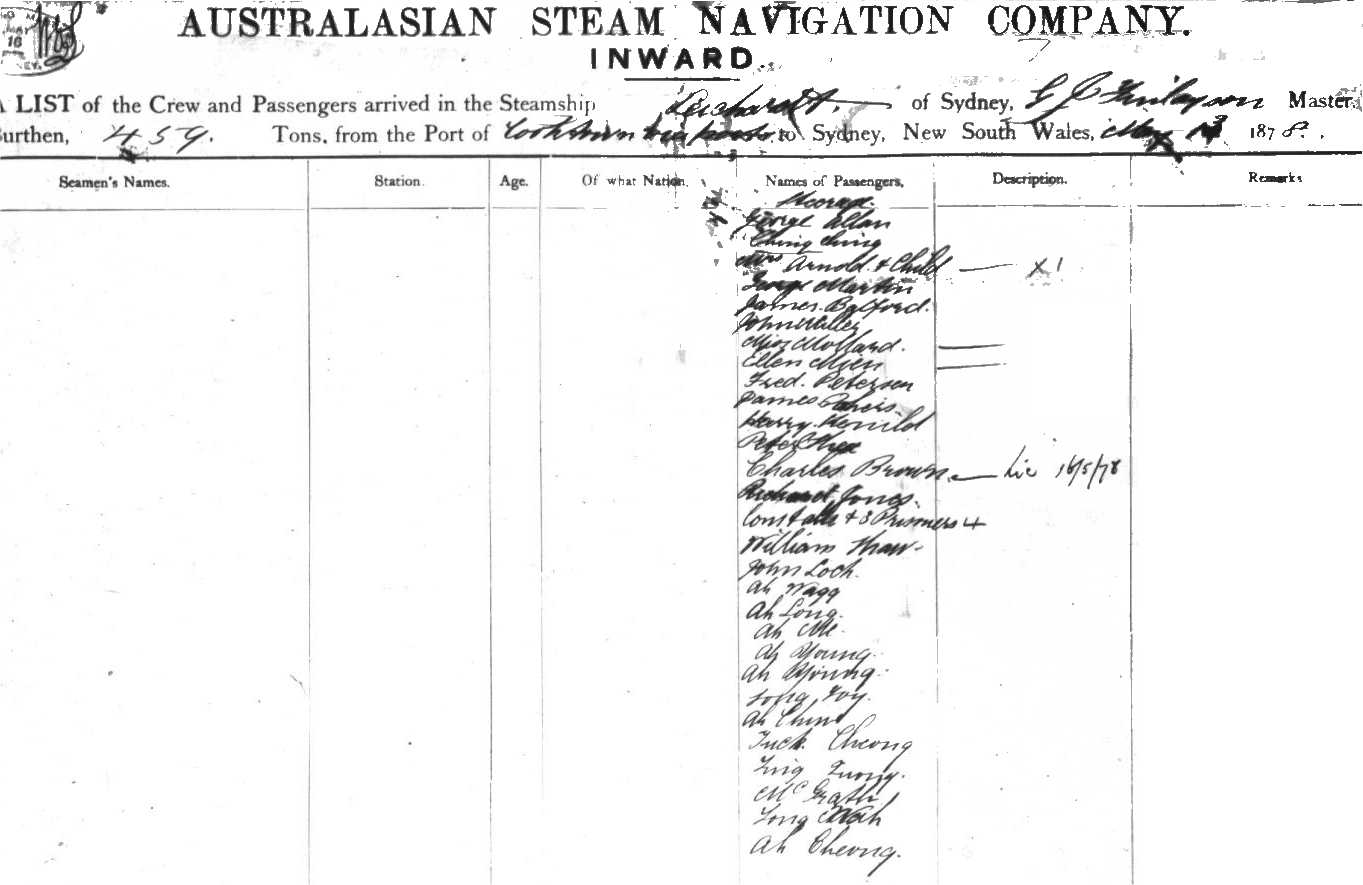 MAY
16
AUSTRALASIAN STEAM NAVIGATION COMPANY.
INWARD.
A LIST of the Crew and Passengers arrived in the Steamship Leichardt. of Sydney, Finlayson Master,
Burthen, 459. Tons, from the Port of Cooktown via ports to Sydney, New South Wales, May 13 1878.
Seamen's Names. Station. Age. Of what Nation. Names of Passengers, Description. Remarks
Steerage.
George Allan
Ching Ching
Mrs Arnold & Child — X 1
George Martin
James Balford.
John Miller
Miss Mollard.
Ellen
Fred. Petersen
James
Harry
Peter
Charles Brown. — Lic 16/5/78
Richard Jones.
Constable + 3 Prisoners 4
William Shaw
John Loch.
Ah Wagg
Ah Long.
Ah Me.
Ah Young.
Ah Young.
Long Foy.
Ah
Tuck Cheong
McGrath
Long Wah
Ah Cheong.